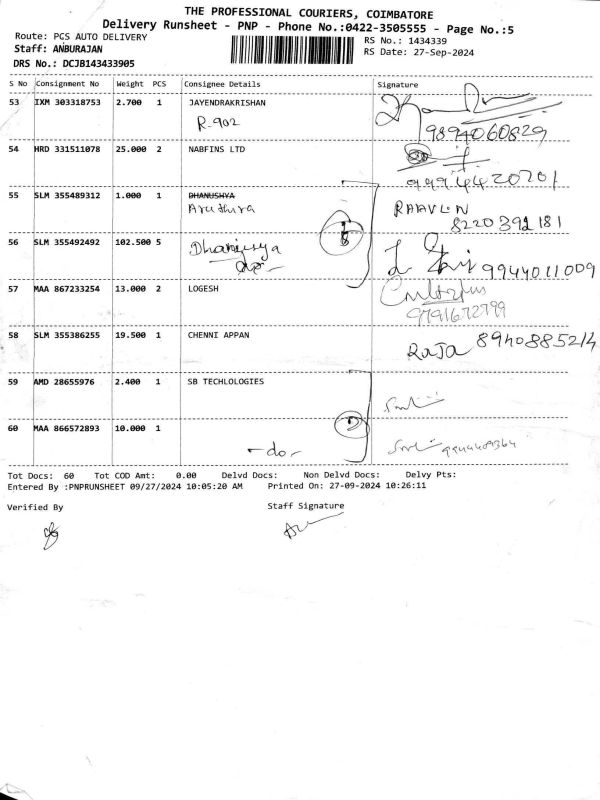 THE PROFESSIONAL COURIERS, COIMBATORE
Delivery Runsheet - PNP - Phone No.:0422-3505555 - Page No.:5
Route: PCS AUTO DELIVERY
RS No.: 1434339
Staff: ANBURAJAN
RS Date: 27-Sep-2024
DRS No.: DCJB143433905
S No Consignment No Weight PCS Consignee Details Signature
53 IXM 303318753 2.700 1 JAYENDRAKRISHAN
R-902
9894060829
54 HRD 331511078 25.000 2 NABFINS LTD
9994420201
55 SLM 355489312 1.000 1 DHANUSHYA
Aruthira
RAAVLN
8220392181
56 SLM 355492492 102.500 5 Dhanusya
9944011009
57 MAA 867233254 13.000 2 LOGESH
9791672799
58 SLM 355386255 19.500 1 CHENNI APPAN
RaJA 8940885214
59 AMD 28655976 2.400 1 SB TECHLOLOGIES
60 MAA 866572893 10.000 1
-do-
9944409364
Tot Docs: 60 Tot COD Amt: 0.00 Delvd Docs: Non Delvd Docs: Delvy Pts:
Entered By :PNPRUNSHEET 09/27/2024 10:05:20 AM Printed On: 27-09-2024 10:26:11
Verified By Staff Signature